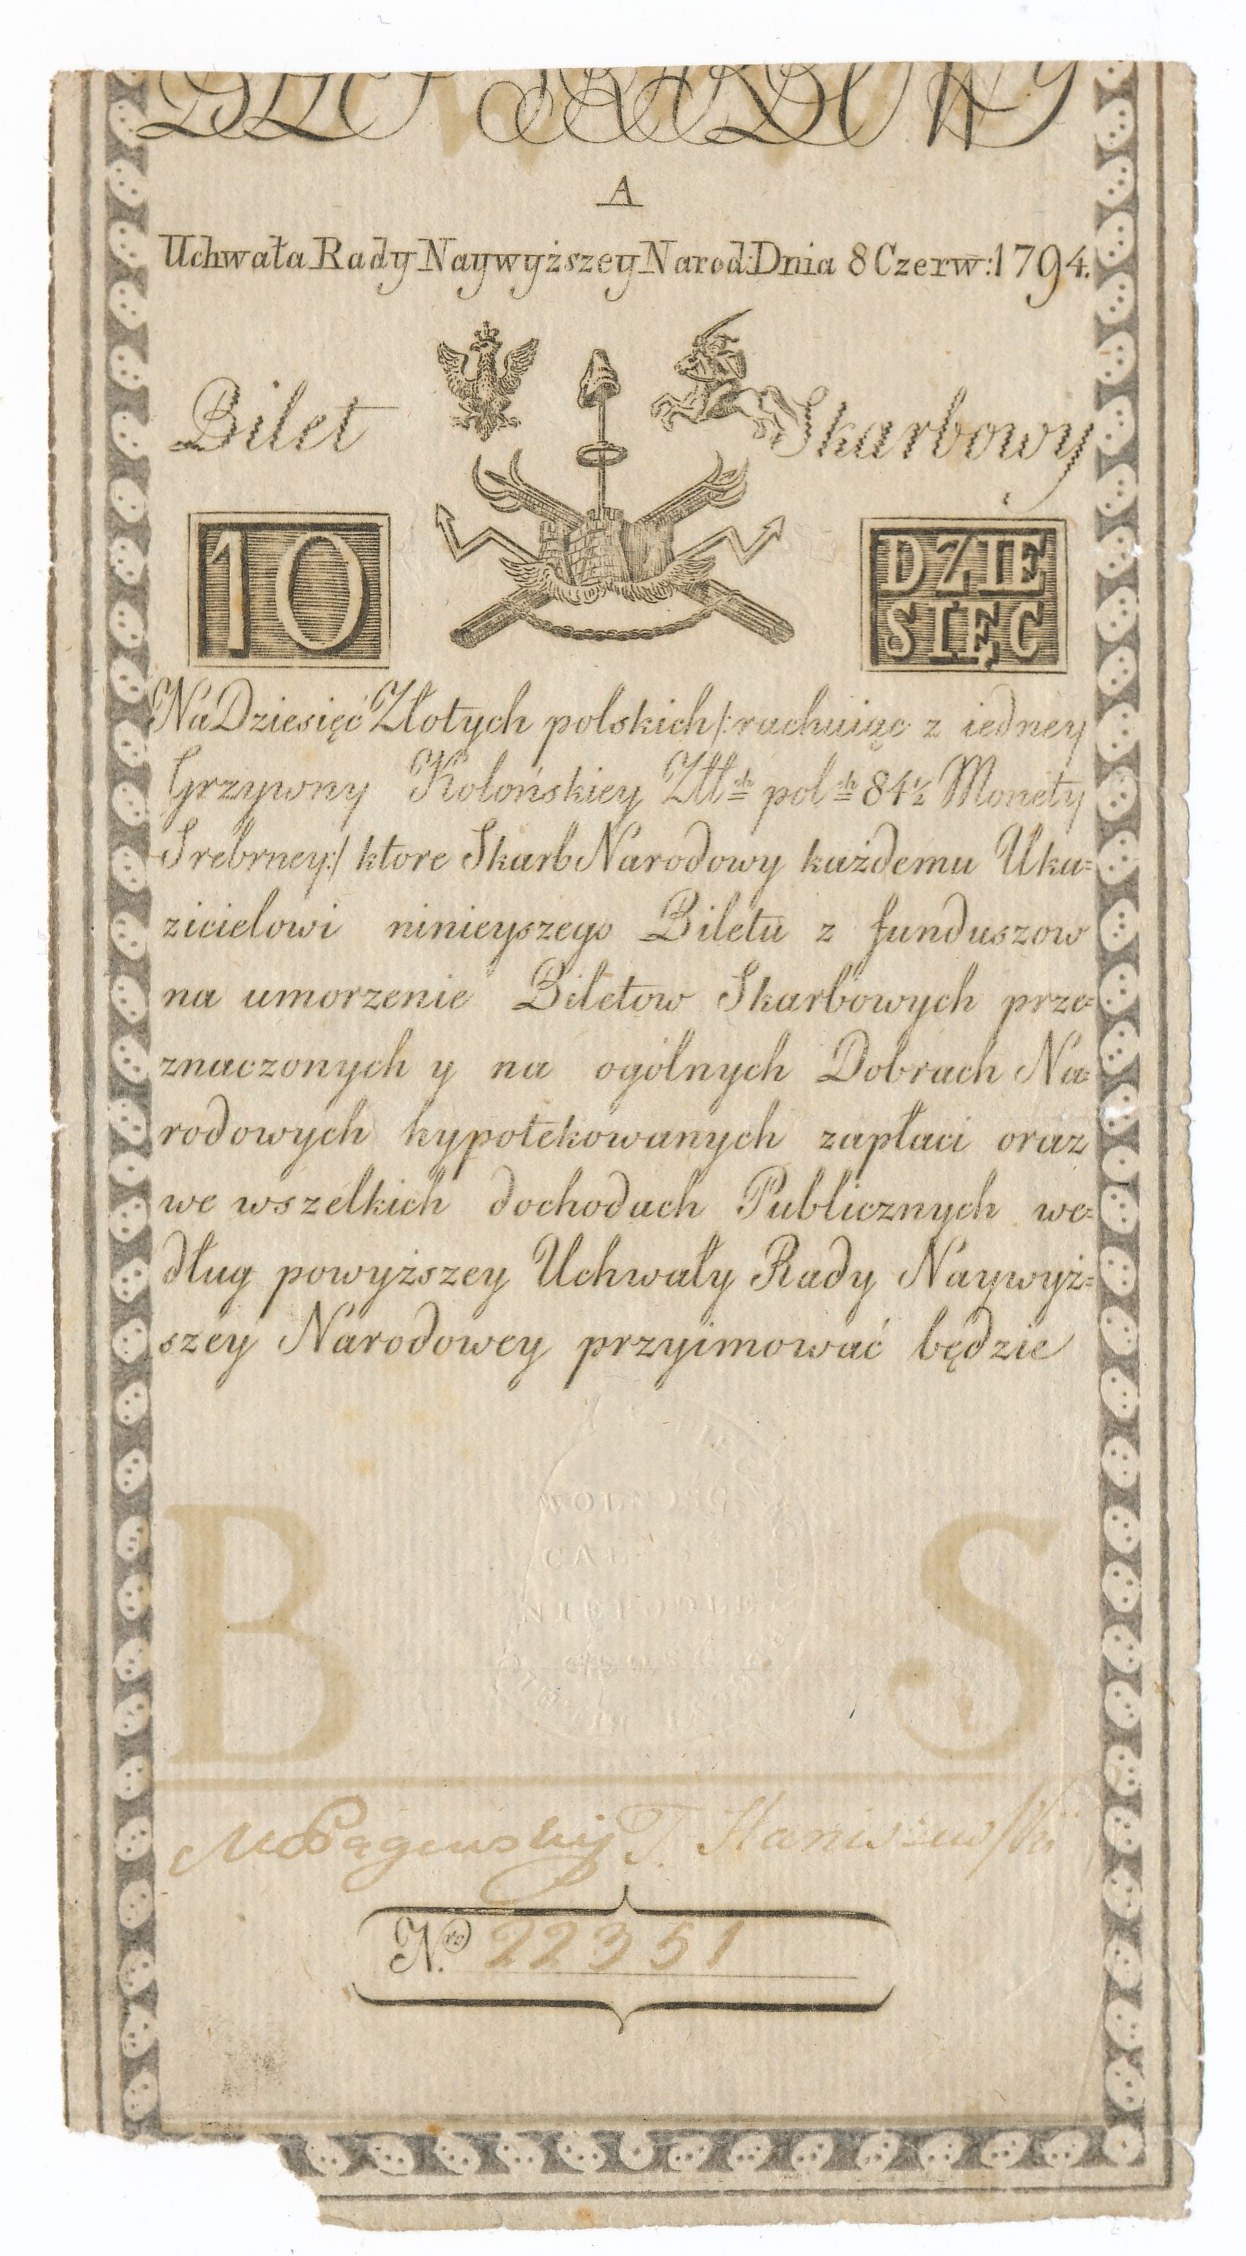 BILET SKARBOWY
A
Uchwała Rady Naywyższey Narod: Dnia 8 Czerw: 1794.
Bilet Skarbowy
10
DZIE
SIĘC
Na Dziesięć Złotych polskich /: rachuiąc z iedney
Grzywny Kolońskiey Złł ch pol ch 84½ Monety
Srebrney :/ ktore Skarb Narodowy każdemu Uka=
zicielowi ninieyszego Biletu z funduszow
na umorzenie Biletow Skarbowych prze=
znaczonych y na ogólnych Dobrach Na=
rodowych hypotekowanych zapłaci oraz
we wszelkich dochodach Publicznych we=
dług powyższey Uchwały Rady Naywyż=
szey Narodowey przyimować będzie
WOLNOSC
CAŁOSC
NIEPODLE
B S
T. Staniszewski
N.ro 22351